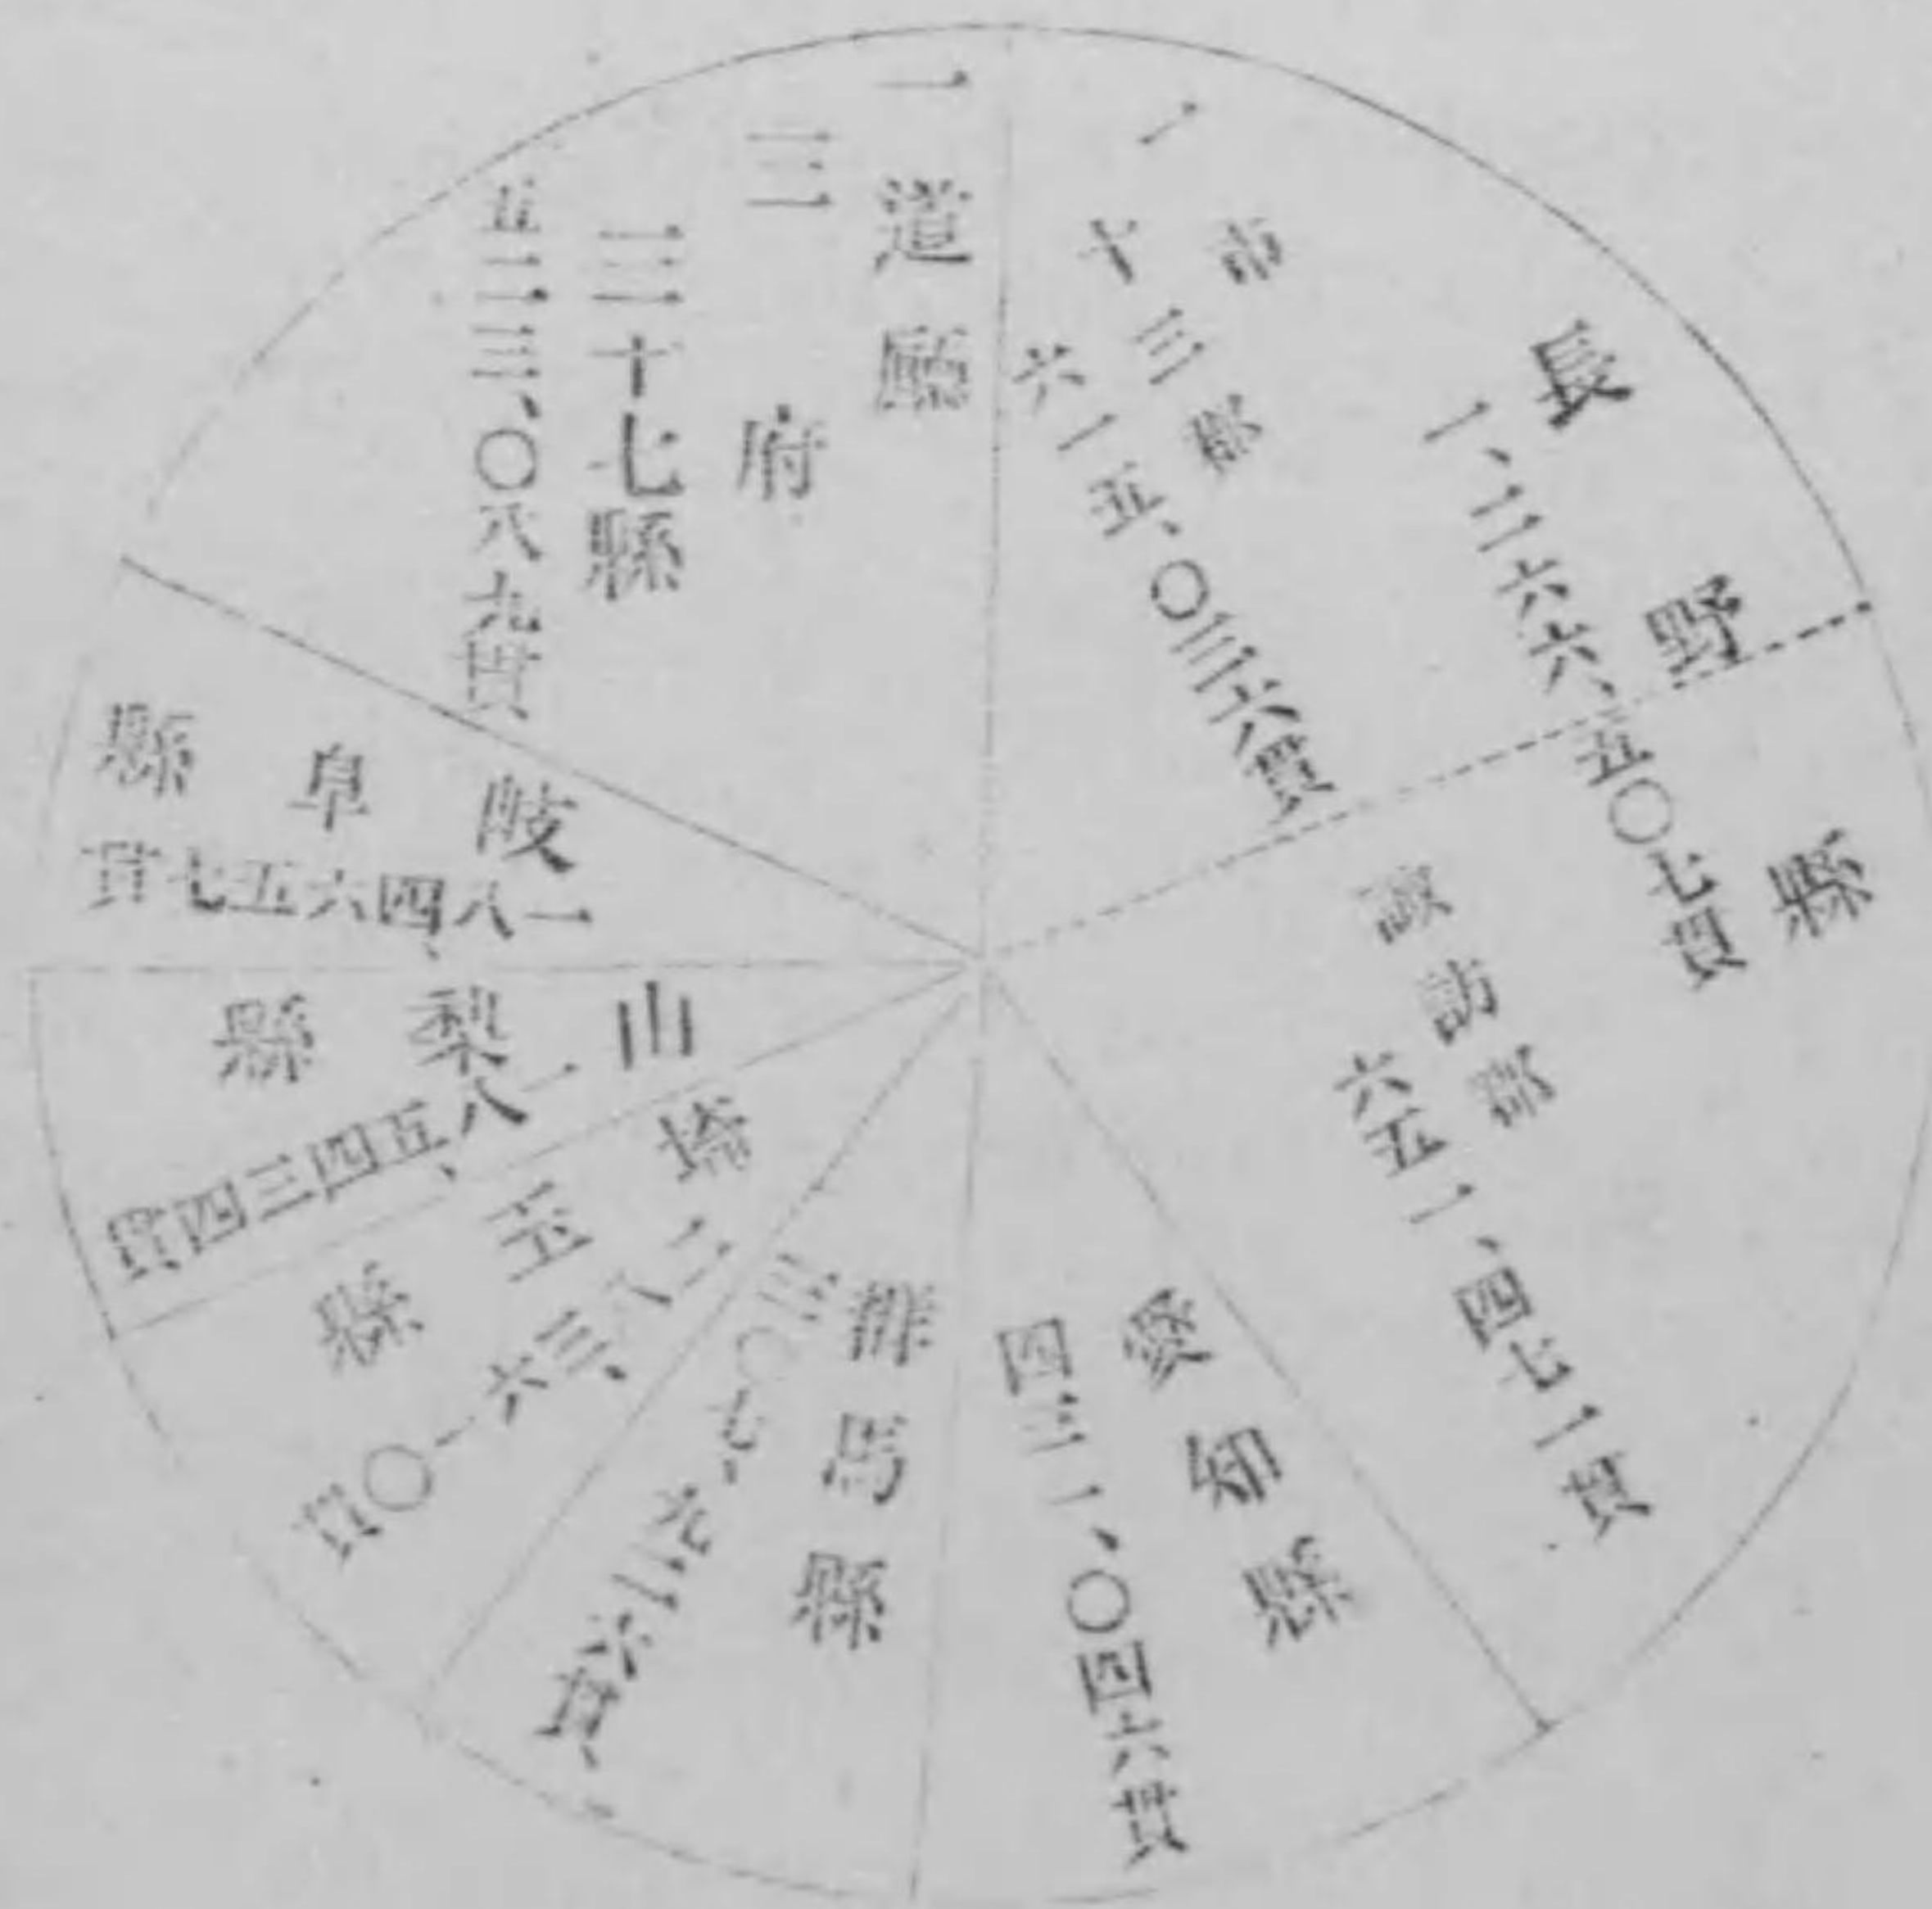 長野縣
一、二六六、五〇七貫
一市
十三郡
六一五、〇三六貫
諏訪郡
六五一、四七一貫
愛知縣
四三一、〇四六貫
群馬縣
三〇七、九二六貫
埼玉縣
二八三、六一〇貫
山梨縣
一八五、四三四貫
岐阜縣
一八四、六五七貫
一道廳
三府
三十七縣